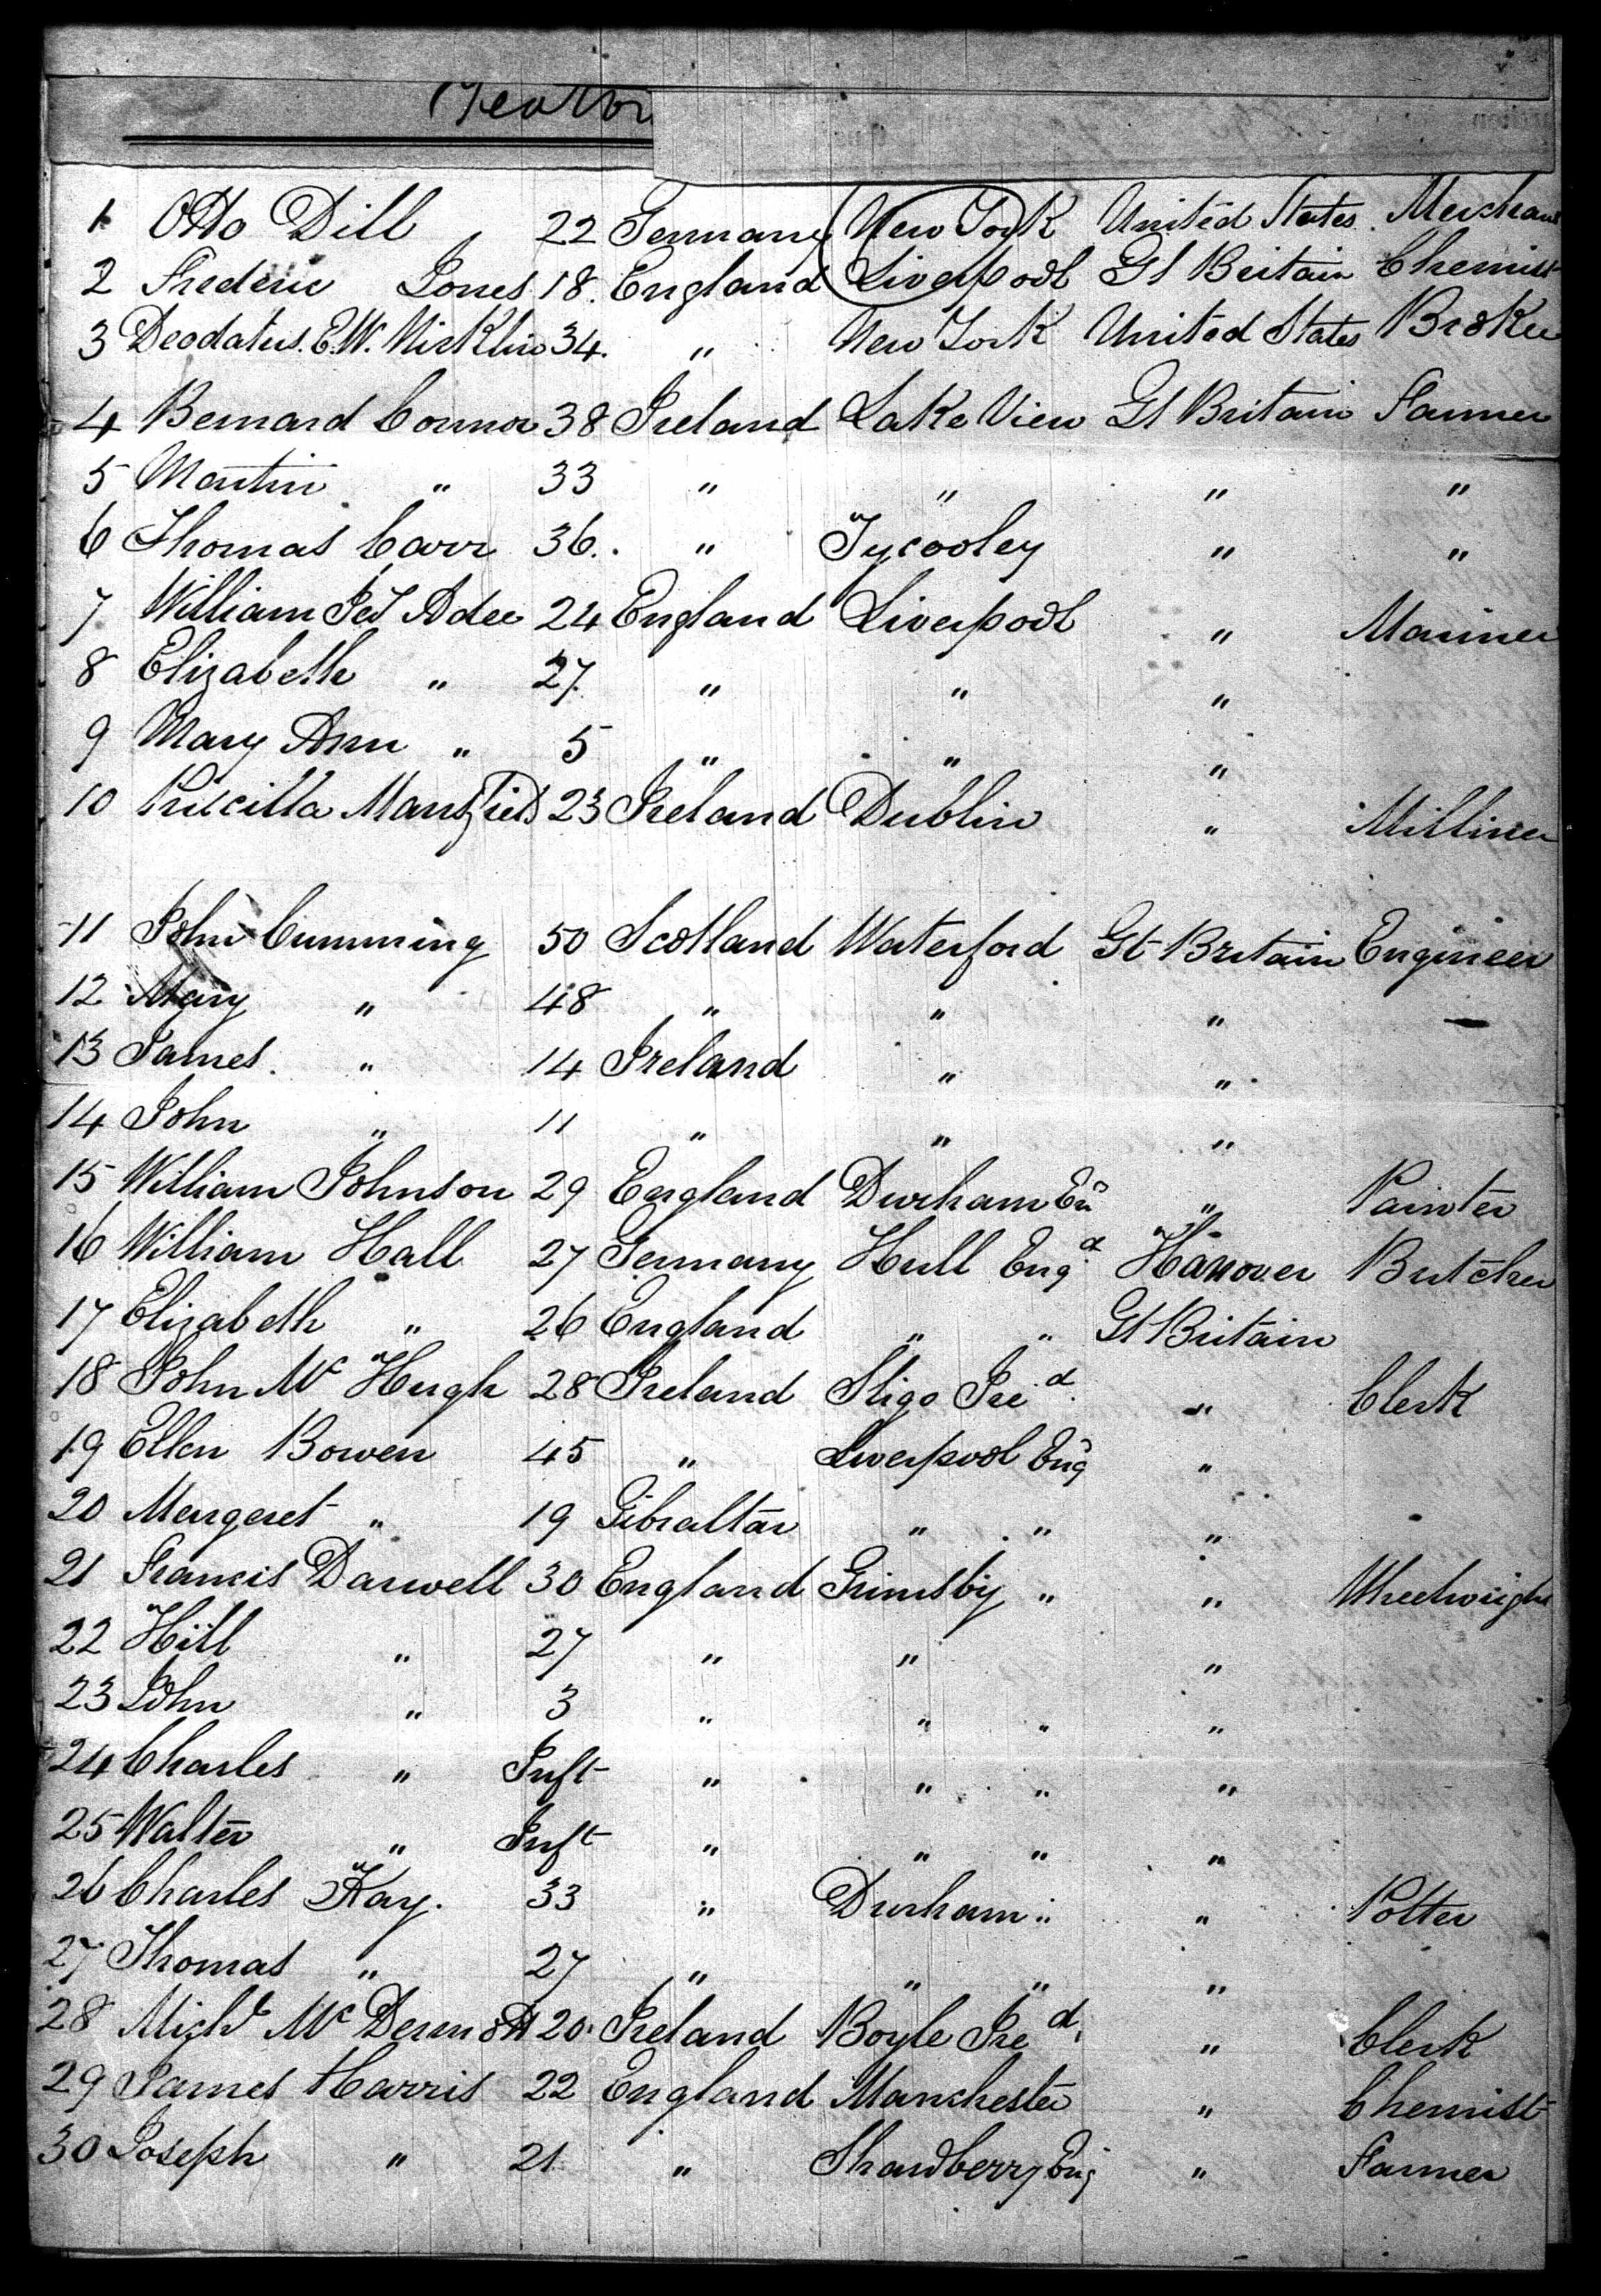 1 Otto Dill 22 Germany New York United States Merchant
2 Frederic Jones 18 England Liverpool Gt Britain Chemist
3 Deodatus. E.W. 34. " New York United States Broker
4 Bernard Connor 38 Ireland Lake View Gt Britain Farmer
5 Martin " 33 " " " "
6 Thomas Carr 36. " Tycooley " "
7 William Adee 24 England Liverpool " Mariner
8 Elizabeth " 27. " " "
9 Mary Ann " 5 " " "
10 Priscilla Mansfield 23 Ireland Dublin " Milliner
11 John Cumming 50 Scotland Waterford Gt Britain Engineer
12 Mary " 48 " " " —
13 James. " 14 Ireland " "
14 John " 11 " " "
15 William Johnson 29 England Durham En " Painter
16 William Hall 27 Germany Hull Engd Hanover Butcher
17 Elizabeth " 26 England " " Gt Britain
18 John Mc Hugh 28 Ireland Sligo Ired. " Clerk
19 Ellen Bowen 45 " Liverpool Eng "
20 Margeret " 19 Gibraltar " " "
21 Francis Darwell 30 England Grimsby " " Wheelwright
22 Hill " 27 " " "
23 John " 3 " " " "
24 Charles " Inft " " " "
25 Walter " Inft " " " "
26 Charles Kay. 33 " Durham " " Potter
27 Thomas " 27 " " " "
28 Michl Mc Dermott 20. Ireland Boyle Ired. " Clerk
29 James Harris 22 England Manchester " Chemist
30 Joseph " 21 " Shawdberry Eng " Farmer